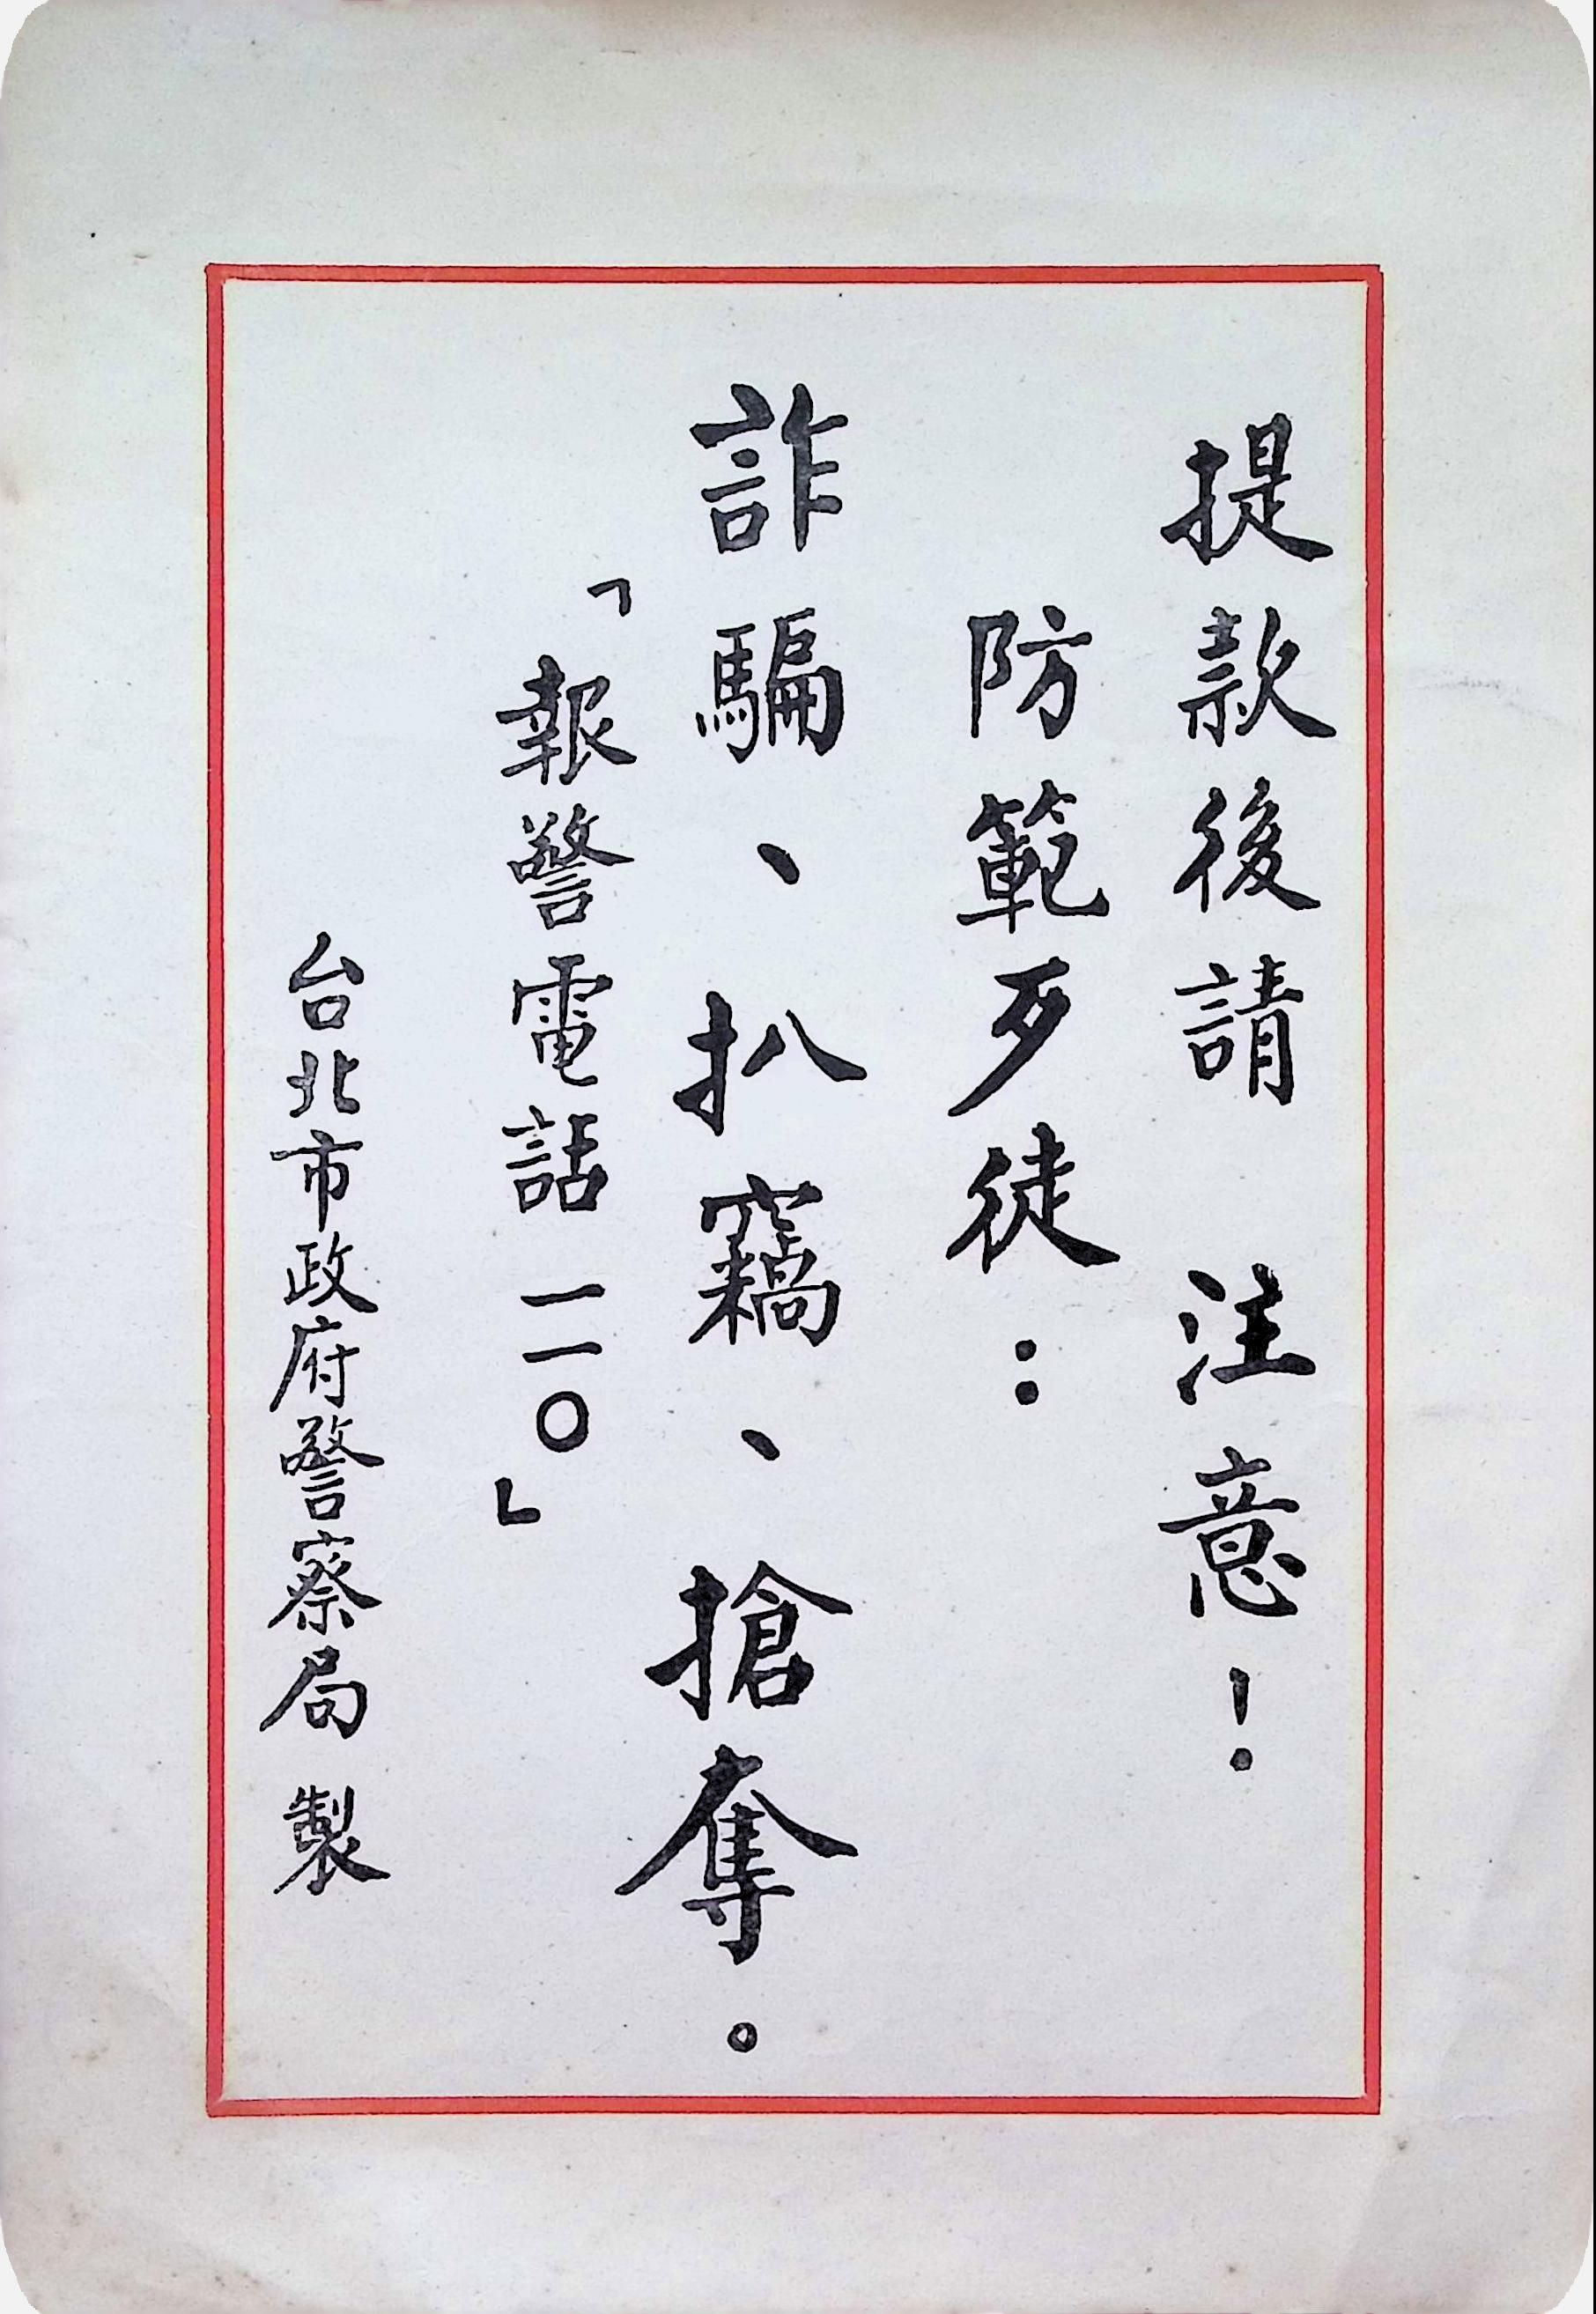 提款後請 注意！
防範歹徒：
詐騙、扒竊、搶奪。
「報警電話一一〇」
台北市政府警察局 製